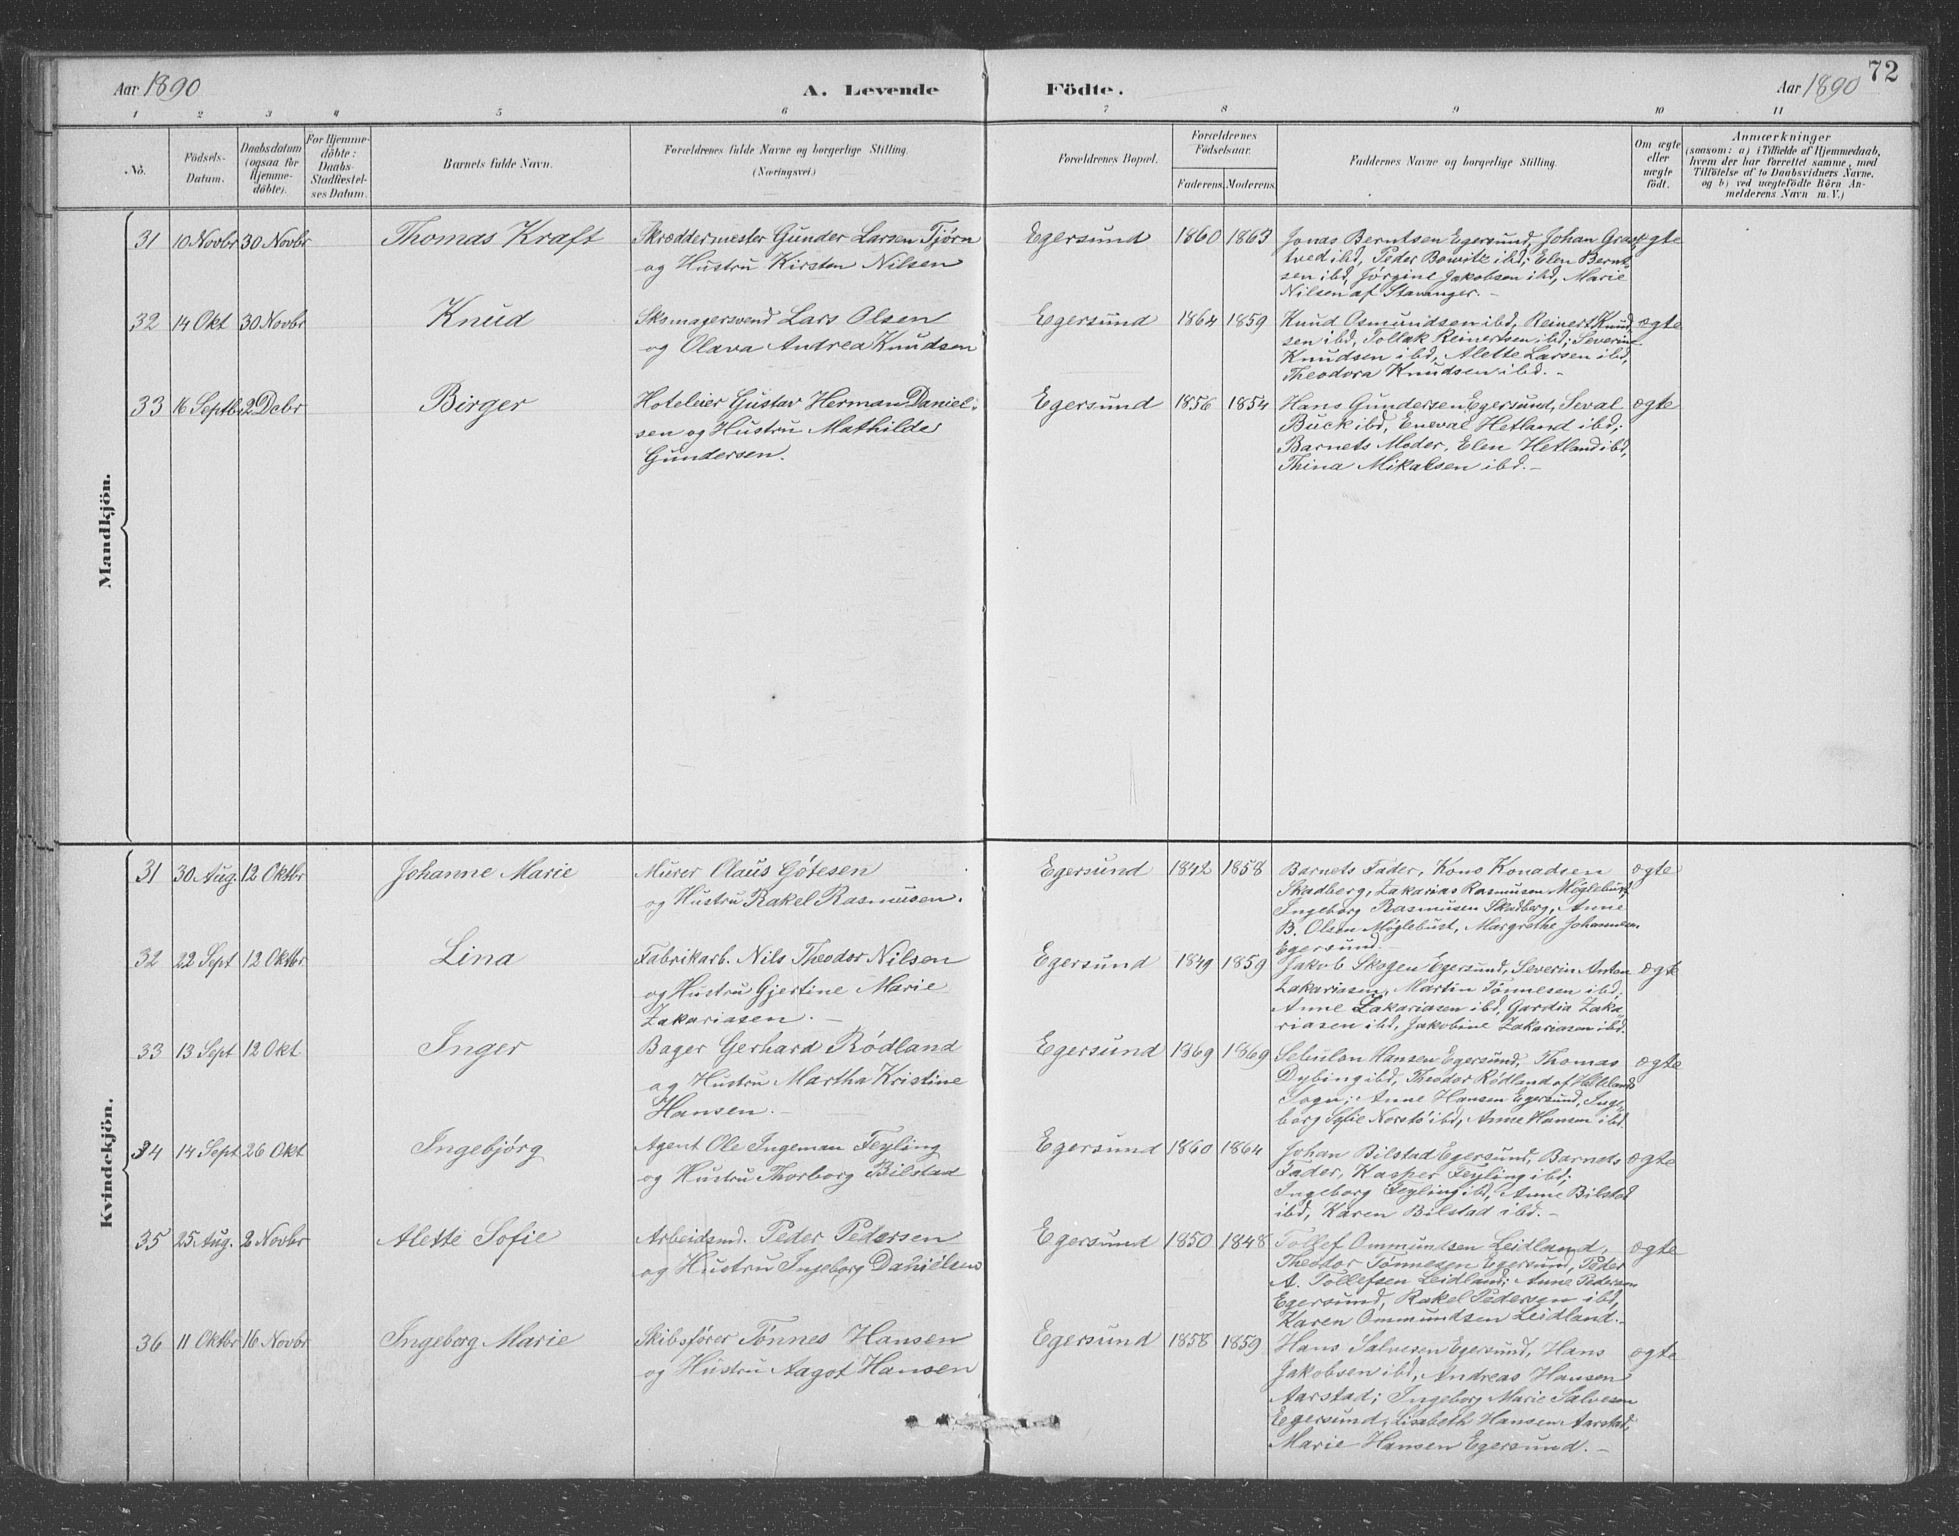 72
Aar 1890
A. Levende Födte.
Aar 1890
1 2 3 4 5 6 7 8 9 10 11
No.
Födsels-
Datum.
Daabsdatum
(ogsaa for
Hjemme-
döbte).
For Hjemme-
döbte:
Daabs-
Stadfæstel-
ses Datum.
Barnets fulde Navn.
Forældrenes fulde Navne og borgerlige Stilling.
(Næringsvei.)
Forældrenes Bopæl.
Forældrenes
Födselsaar.
Faderens. Moderens.
Faddernes Navne og borgerlige Stilling.
Om ægte
eller
uægte
født.
Anmærkninger
(saasom: a) i Tilfælde af Hjemmedaab,
hvem der har forrettet samme, med
Tilföielse af to Daabsvidners Navne.
og b) ved uægtefödte Börn An-
melderens Navn m. V.)
Mandkjön.
31 10 Novbr 30 Novbr Thomas Kraft
Skræddermester Gunder Larsen Tjørn
og Hustru Kirsten Nilsen
Egersund 1860 1863
Jonas Berntsen Egersund, Johan Grast-
tved ibd, Peder Bowitz ibd; Elen Bernt-
sen ibd, Jørgine Jakobsen ibd, Marie
Nilsen af Stavanger. -
ægte
32 14 Okt 30 Novbr Knud
Skomagersvend Lars Olsen
og Olava Andrea Knudsen
Egersund 1864 1859
Knud Osmundsen ibd, Reinert Knud-
sen ibd, Tollak Reinertsen ibd; Severine
Knudsen ibd, Alette Larsen ibd,
Theodora Knudsen ibd. -
ægte
33 16 Septb. 2 Debr Birger
Hoteleier Gustav Herman Daniel-
sen og Hustru Mathilde
Gundersen.
Egersund 1856 1854
Hans Gundersen Egersund, Seval
Buck ibd, Eneval Hetland ibd;
Barnets Moder, Elen Hetland ibd,
Thina Mikalsen ibd. -
ægte
Kvindekjön.
31 30 Aug. 12 Oktbr Johanne Marie
Murer Olaus Gøtesen
og Hustru Rakel Rasmusen.
Egersund 1842 1858
Barnets Fader, Kons Konadsen
Skadberg, Zakarias Rasmusen Møglebust,
Ingeborg Rasmusen Skadberg, Anne
B. Olsen Møglebust, Margrethe Johannesen
Egersund. -
ægte
32 22 Sept 12 Oktbr Lina
Fabrikarb. Nils Theodor Nilsen
og Hustru Gjertine Marie
Zakariasen. -
Egersund 1849 1859
Jakob Skogen Egersund, Severin Anton
Zakariasen, Martin Tønnesen ibd;
Anne Zakariasen ibd, Gardia Zaka-
riasen ibd, Jakobine Zakariasen ibd.
ægte
33 13 Sept 12 Okt Inger
Bager Gerhard Rødland
og Hustru Martha Kristine
Hansen. -
Egersund 1869 1869
Sebulon Hansen Egersund, Thomas
Dybing ibd, Theodor Rødland af Hellelands
Sogn; Anne Hansen Egersund, Inge-
borg Sofie Norstø ibd, Anne Hansen ibd
ægte
34 14 Sept 26 Okt Ingebjørg
Agent Ole Ingeman Feyling
og Hustru Thorborg Bilstad
Egersund 1860 1864
Johan Bilstad Egersund, Barnets
Fader, Kasper Feyling ibd;
Ingeborg Feyling ibd, Anne Bilstad
ibd, Karen Bilstad ibd. -
ægte
35 25 Aug. 2 Novbr Alette Sofie
Arbeidsmd. Peder Pedersen
og Hustru Ingeborg Danielsen
Egersund 1850 1848
Tollef Ommundsen Leidland,
Theodor Tønnesen Egersund, Peder
A. Tollefsen Leidland; Anne Pedersen
Egersund, Rakel Pedersen ibd,
Karen Ommundsen Leidland. -
ægte
36 11 Oktbr 16 Novbr Ingeborg Marie
Skibsfører Tønnes Hansen
og Hustru Aagot Hansen
Egersund 1858 1859
Hans Salvesen Egersund, Hans
Jakobsen ibd, Andreas Hansen
Aarstad; Ingeborg Marie Salvesen
Egersund, Lisabeth Hansen Aarstad,
Marie Hansen Egersund. -
ægte